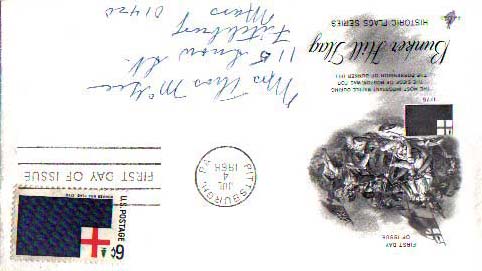 Historic Flags Series
Bunker Hill Flag
THE MOST IMPORTANT BATTLE DURING
THE SIEGE OF BOSTON WAS FOR
THE POSSESSION OF BUNKER HILL
1775
FIRST DAY
OF ISSUE
PITTSBURGH, PA
JUL
4
1968
FIRST DAY OF ISSUE
U.S. POSTAGE
6¢
BUNKER HILL FLAG 1775
Mrs Thos McGee
115 Snow St.
Fitchburg
Mass
01420